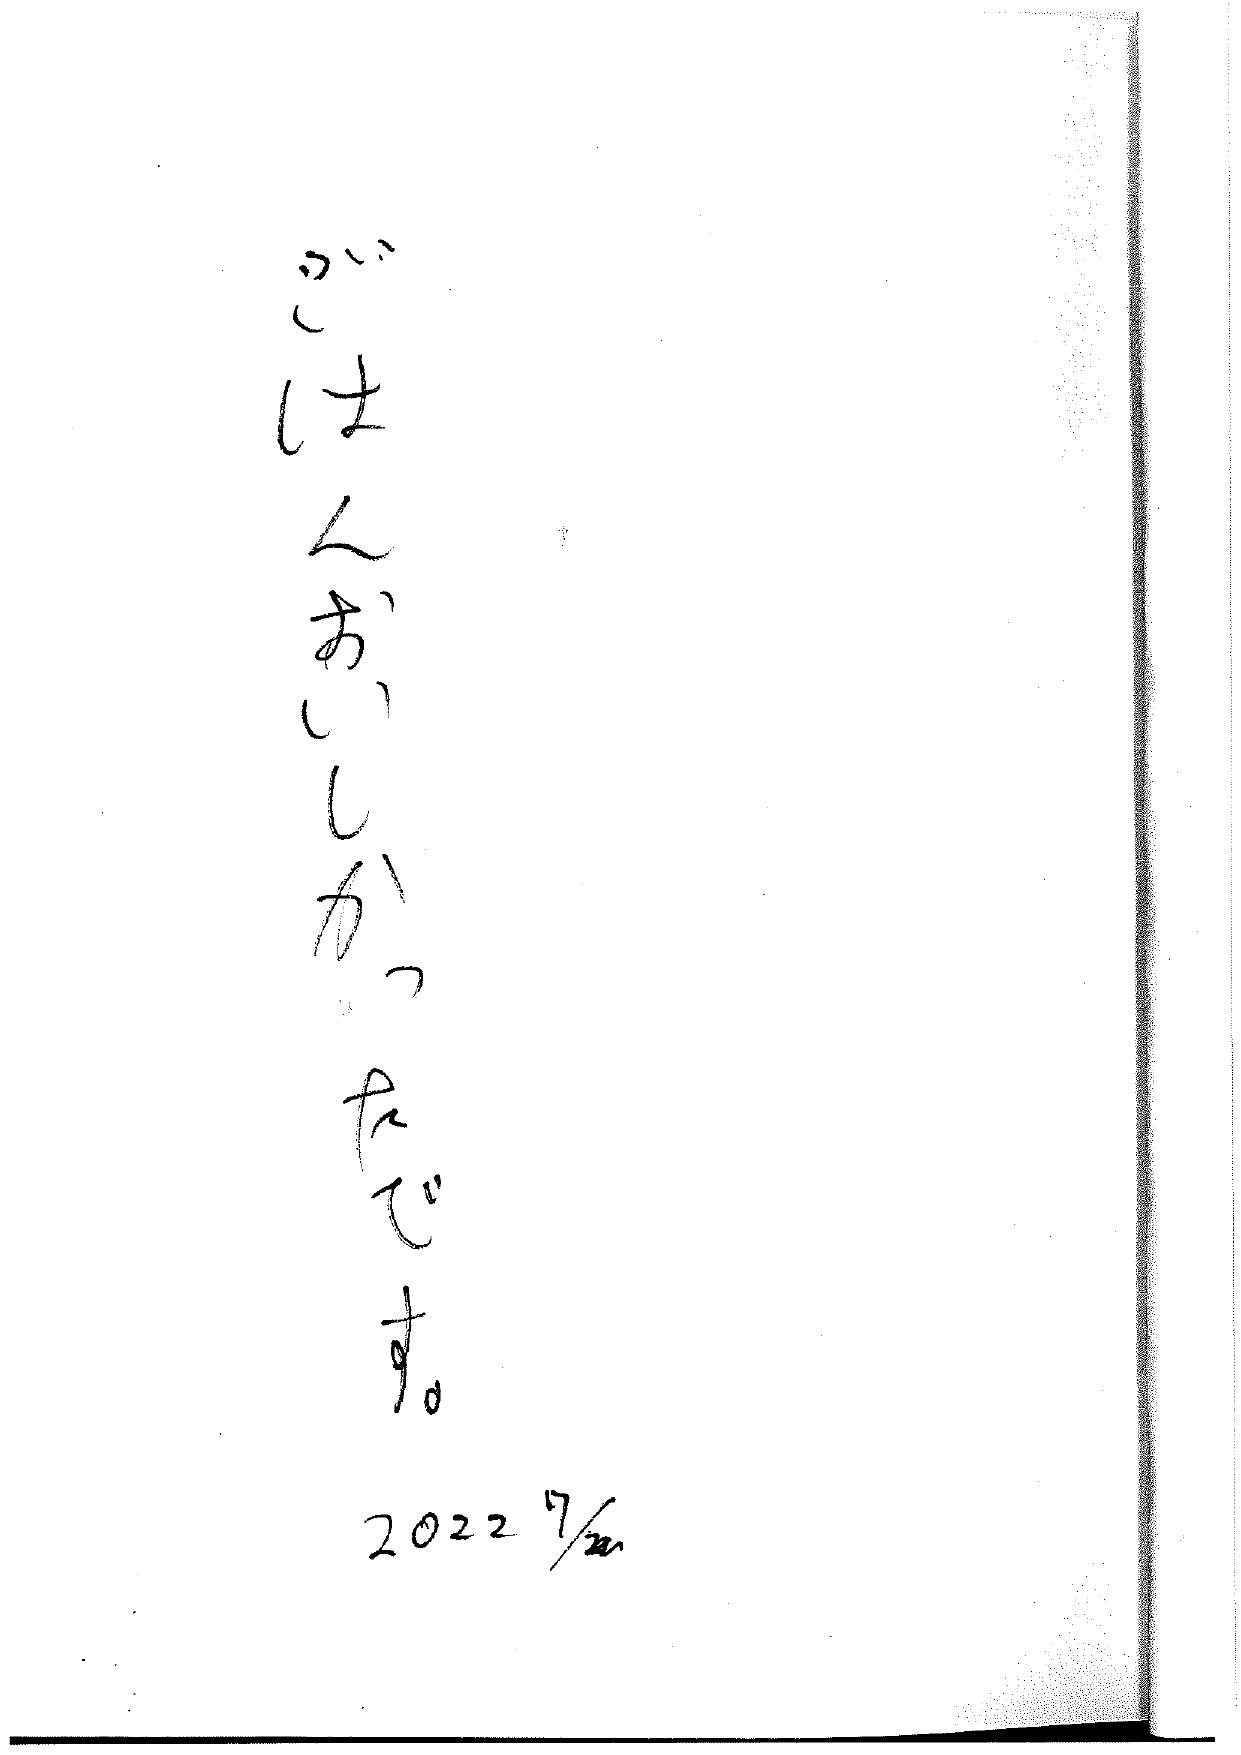 ごはんおいしかったです。
2022 7/